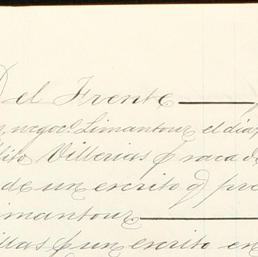 Del Frente
negoc.º Limantour el día
Villerias p saca d
de un escrito q pre
imantour
illas p un escrito en